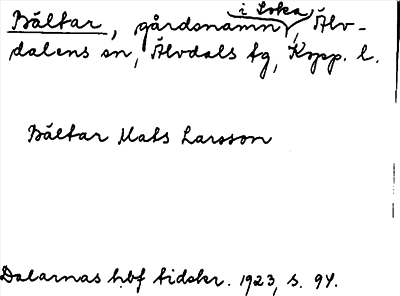 i Loka
Bältar, gårdsnamn, Älv-
dalens sn, Älvdals tg, Kopp. l.
Bältar Mats Larsson
Dalarnas hbf tidskr. 1923, s. 94.